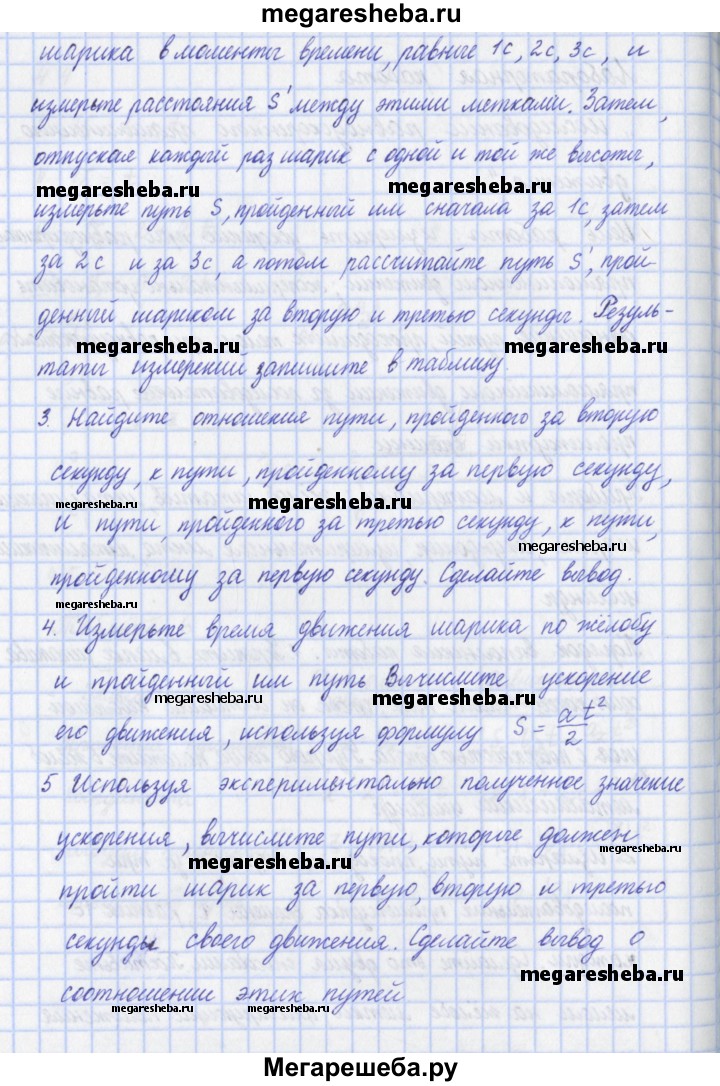 megaresheba.ru
шарика в моменты времени, равные 1с, 2с, 3с, и
измерьте расстояния S' между этими метками. Затем,
отпуская каждый раз шарик с одной и той же высоты,
megaresheba.ru megaresheba.ru
измерьте путь S, пройденный им сначала за 1с, затем
за 2с и за 3с, а потом рассчитайте путь S', прой-
денный шариком за вторую и третью секунды. Резуль-
megaresheba.ru megaresheba.ru
таты измерений запишите в таблицу.
3. Найдите отношения пути, пройденного за вторую
секунду, к пути, пройденному за первую секунду,
megaresheba.ru megaresheba.ru
и пути, пройденного за третью секунду, к пути,
megaresheba.ru
пройденному за первую секунду. Сделайте вывод.
megaresheba.ru
4. Измерьте время движения шарика по жёлобу
и пройденный им путь Вычислите ускорение
megaresheba.ru megaresheba.ru
его движения, используя формулу S = at²/2
5 Используя экспериментально полученное значение
ускорения, вычислите пути, которые должен
megaresheba.ru megaresheba.ru
пройти шарик за первую, вторую и третью
секунды своего движения. Сделайте вывод о
megaresheba.ru
соотношении этих путей
megaresheba.ru
Мегарешеба.ру